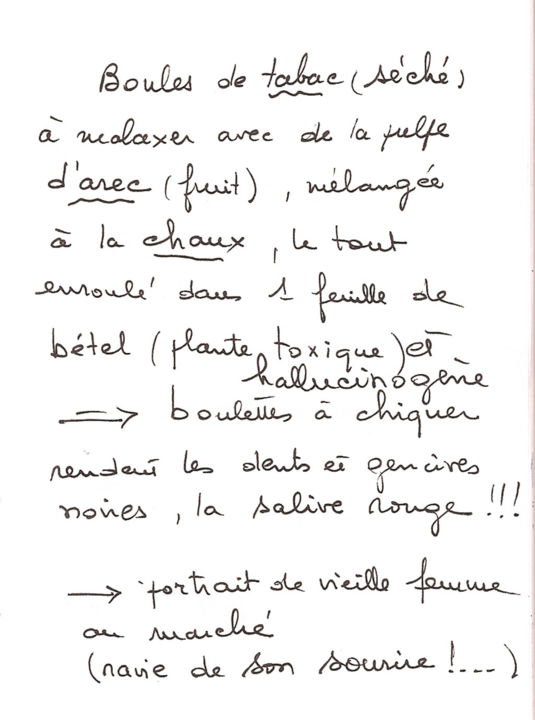 Boules de tabac (séché)
à malaxer avec de la pulpe
d'arec (fruit), mélangée
à la chaux, le tout
enroulé dans 1 feuille de
bétel (plante toxique) et
hallucinogène
⇒ boulettes à chiquer
rendant les dents et gencives
noires, la salive rouge !!!
→ portrait de vieille femme
au marché
(ravie de son sourire !...)